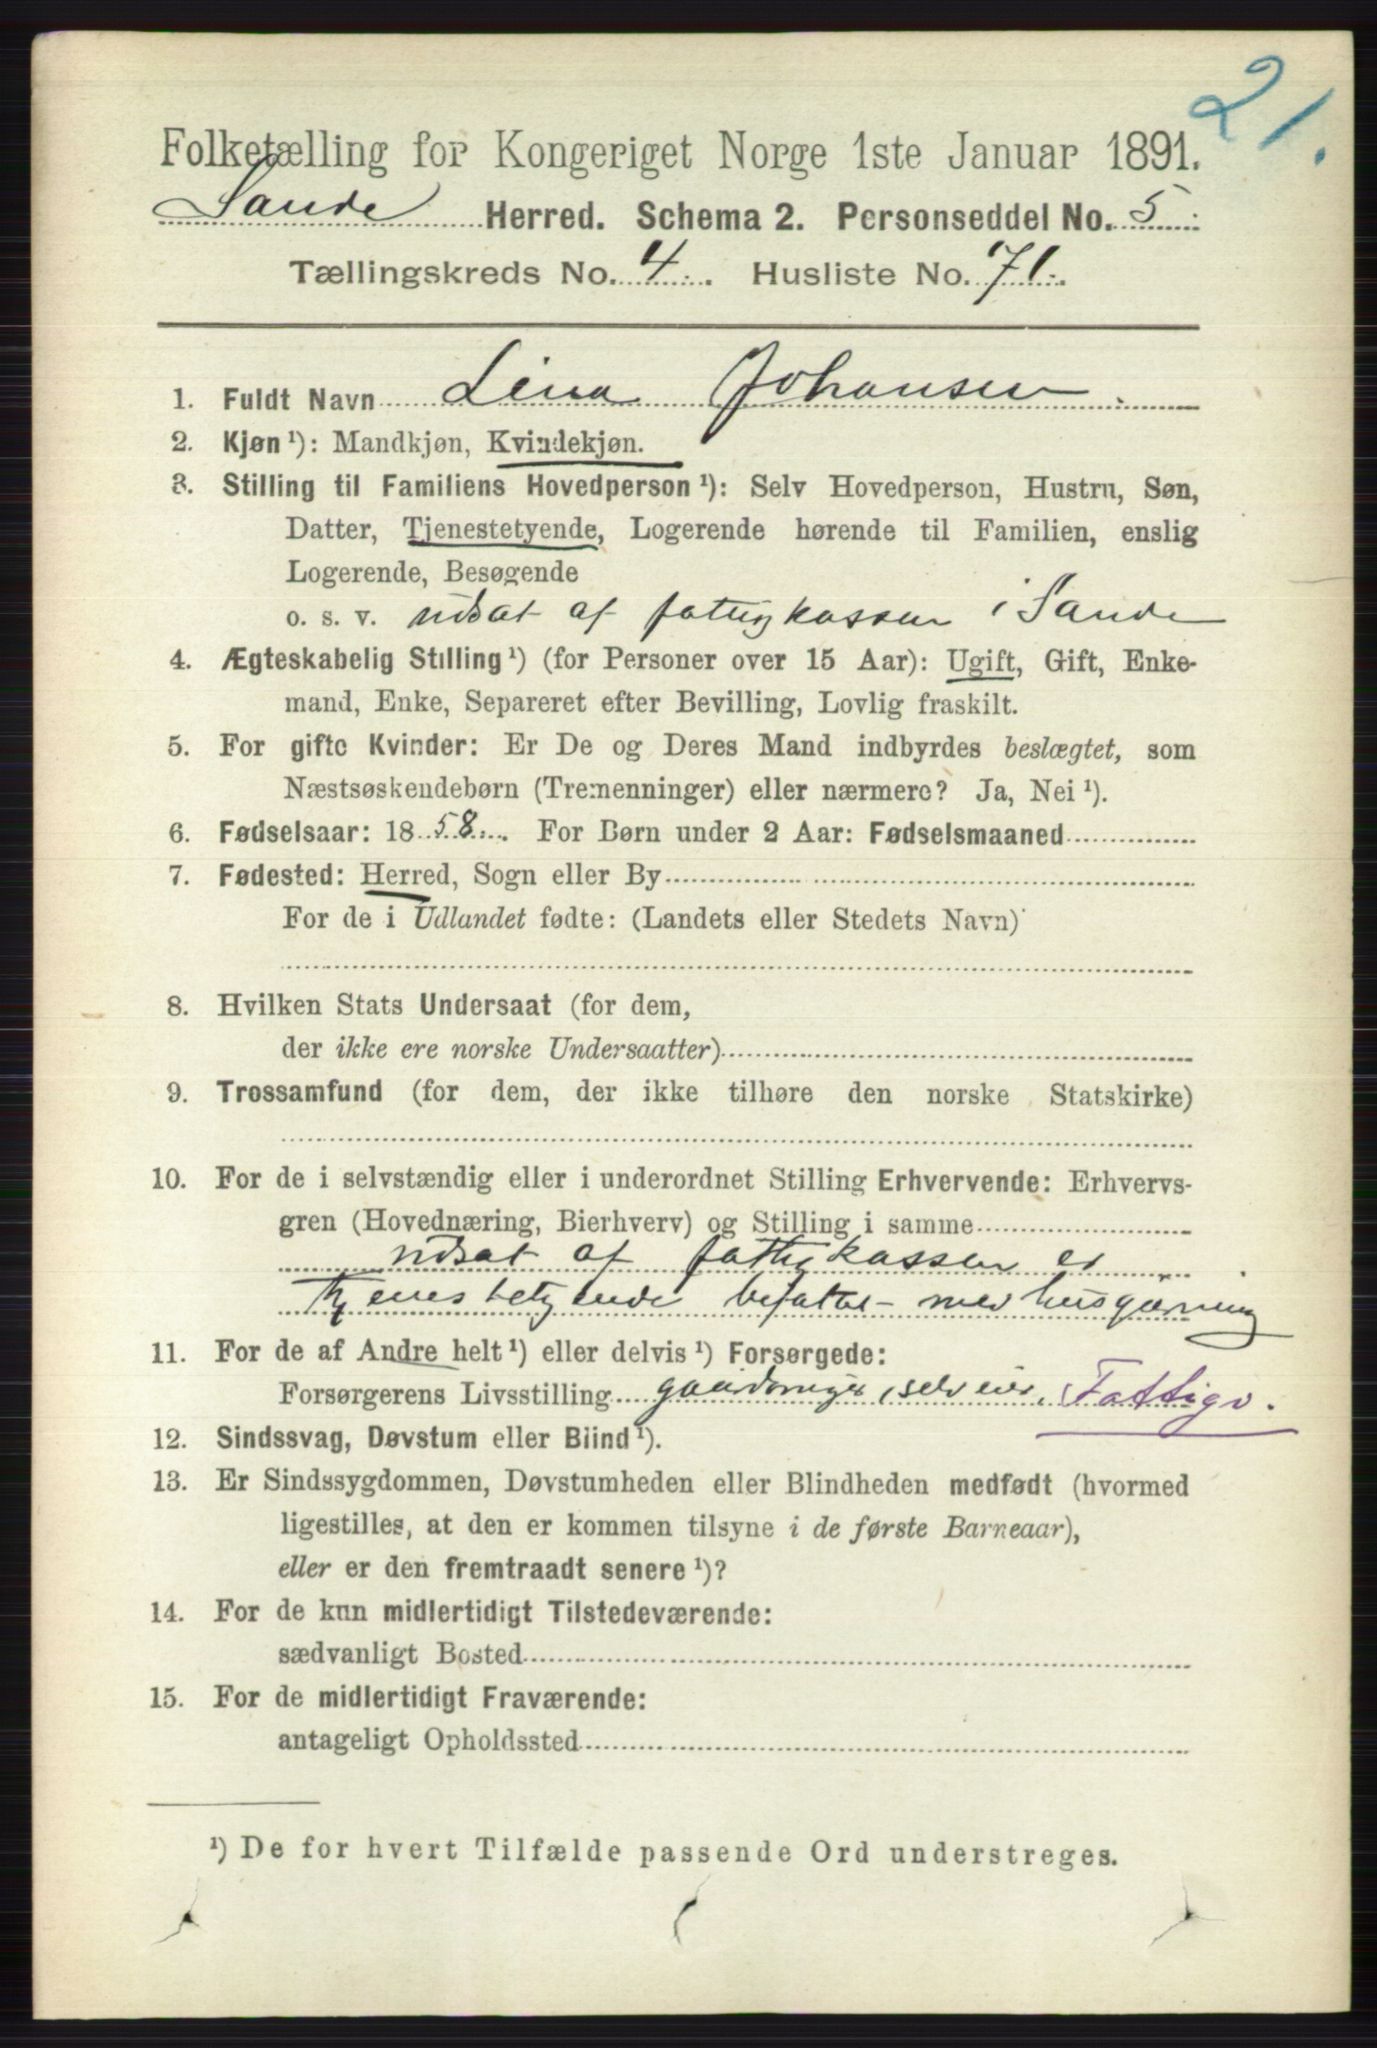 21.
Folketælling for Kongeriget Norge 1ste Januar 1891.
Sande Herred. Schema 2. Personseddel No. 5
Tællingskreds No. 4. Husliste No. 71.
1. Fuldt Navn Lina Johansen
2. Kjøn ¹): Mandkjøn, Kvindekjøn.
3. Stilling til Familiens Hovedperson ¹): Selv Hovedperson, Hustru, Søn,
Datter, Tjenestetyende, Logerende hørende til Familien, enslig
Logerende, Besøgende
o. s. v. udsat af fattigkassen i Sande
4. Ægteskabelig Stilling ¹) (for Personer over 15 Aar): Ugift, Gift, Enke-
mand, Enke, Separeret efter Bevilling, Lovlig fraskilt.
5. For gifte Kvinder: Er De og Deres Mand indbyrdes beslægtet, som
Næstsøskendebørn (Tremenninger) eller nærmere? Ja, Nei ¹).
6. Fødselsaar: 1858. For Børn under 2 Aar: Fødselsmaaned
7. Fødested: Herred, Sogn eller By
For de i Udlandet fødte: (Landets eller Stedets Navn)
8. Hvilken Stats Undersaat (for dem,
der ikke ere norske Undersaatter)
9. Trossamfund (for dem, der ikke tilhøre den norske Statskirke)
10. For de i selvstændig eller i underordnet Stilling Erhvervende: Erhvervs-
gren (Hovednæring, Bierhverv) og Stilling i samme
udsat af fattigkassen er
tjenestetyende befattet med husgjerning
11. For de af Andre helt ¹) eller delvis ¹) Forsørgede:
Forsørgerens Livsstilling gaardbruger, selveier. Fattigv.
12. Sindssvag, Døvstum eller Blind ¹).
13. Er Sindssygdommen, Døvstumheden eller Blindheden medfødt (hvormed
ligestilles, at den er kommen tilsyne i de første Barneaar),
eller er den fremtraadt senere ¹)?
14. For de kun midlertidigt Tilstedeværende:
sædvanligt Bosted
15. For de midlertidigt Fraværende:
antageligt Opholdssted
¹) De for hvert Tilfælde passende Ord understreges.